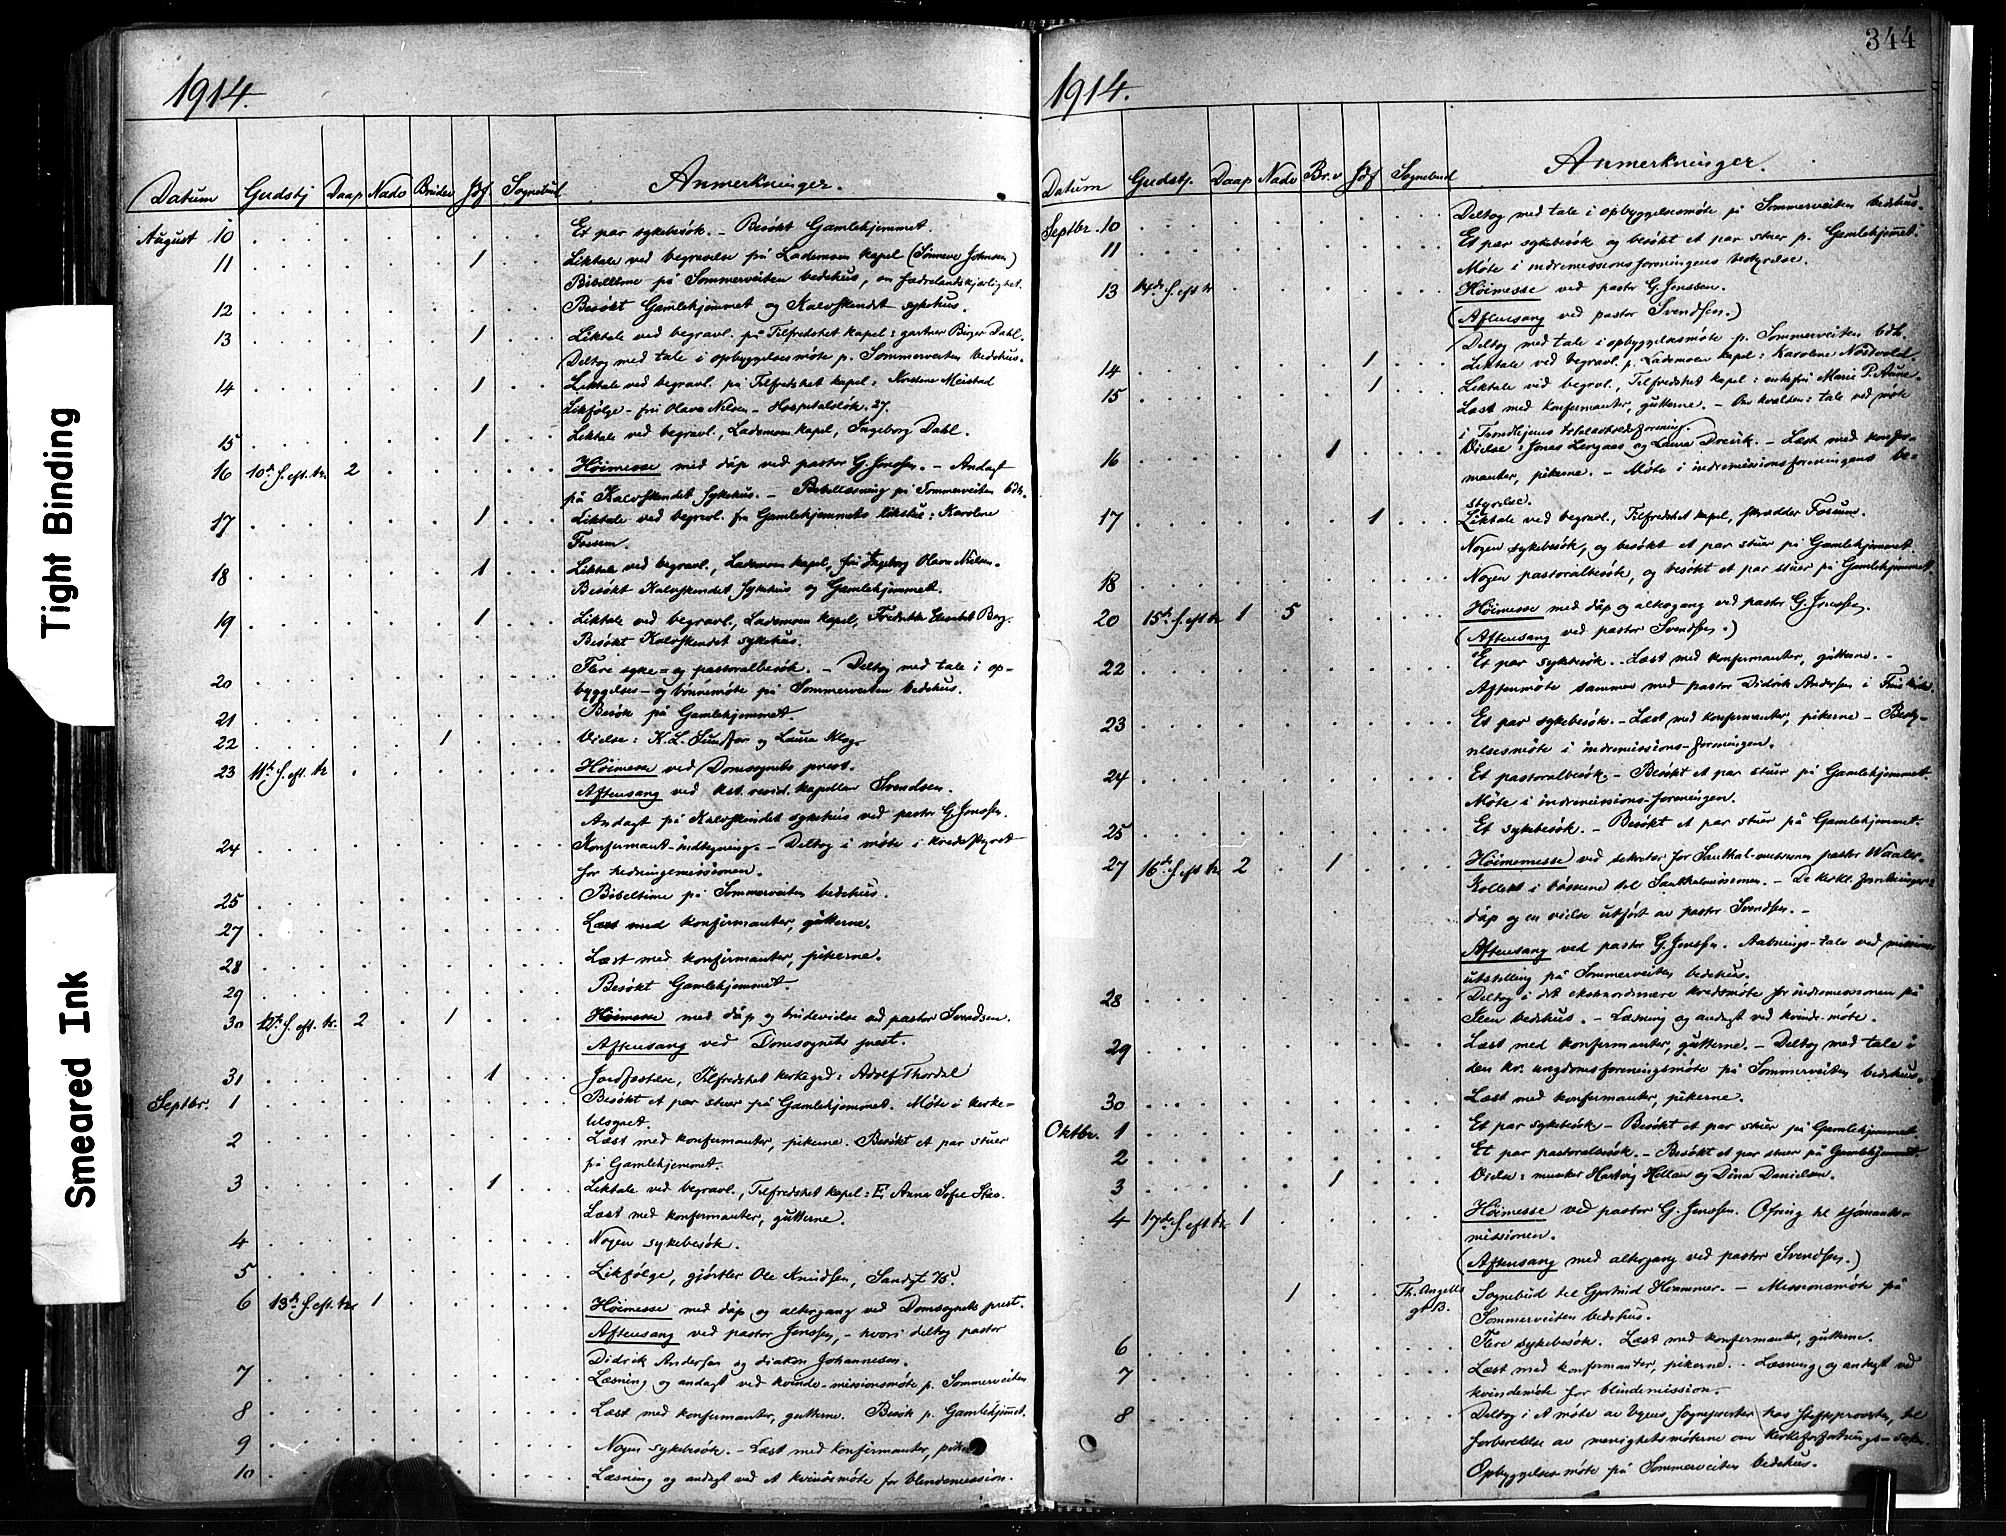 344
1914.
Datum Gudstj Daap Nadv Brudev Jdf Sognebud Anmerkninger.
August 10 Et par sykebesøk. – Besøkt Gamlehjemmet.
11 1 Liktale ved begravelse på Lademoen kapel (Sønneve Johnsen)
Bibeltime på Sommerveiten bedehus, om fædrelandskjærlighet.
12 Besøkt Gamlehjemmet og Kalvskindet sykehus.
13 1 Liktale ved begravl. på Tilfredshet kapel: gartner Birger Dahl.
Deltog med tale i opbyggelsesmøte p. Sommerveiten bedehus.
14 1 Liktale ved begravl. på Tilfredshet kapel: Kirstine Meistad
Likfølge – frú Olava Nilsen – Hospitalsløk. 27.
15 1 Liktale ved begravl., Lademoen kapel, Ingeborg Dahl.
16 10de S. eft. tr. 2 Høimesse med dåp ved pastor G. Jenssen. – Andagt
på Kalvskindet sykehus. – Bibellæsning på Sommerveiten bdh.
17 1 Liktale ved begravl. fra Gamlehjemmets likstue: Karoline
Fossem.
18 1 Liktale ved begravl., Lademoen kapel, frú Ingeborg Olava Nilsen.
Besøkt Kalvskindet sykehus og Gamlehjemmet.
19 1 Liktale ved begravl., Lademoen kapel, Fredrikke Elisabet Berg.
Besøkt Kalvskindet sykehus.
20 Flere syke- og pastoralbesøk. – Deltog med tale i op-
byggelses- og bønnemøte på Sommerveiten bedehus.
21 Besøk på Gamlehjemmet.
22 1 Vielse: K. L. og Laura
23 11te S. eft. tr. Høimesse ved Domsognets prest.
Aftensang ved kst. resid. kapellan Svendsen.
Andagt på Kalvskindet sykehus ved pastor G. Jenssen.
24 Konfirmant-indtegning. – Deltog i møte i kredsstyret
for hedningemissionen.
25 Bibeltime på Sommerveiten bedehus.
27 Læst med konfirmanter, gutterne.
28 Læst med konfirmanter, pikerne.
29 Besøkt Gamlehjemmet.
30 12te S. eft. tr. 2 1 Høimesse med dåp og brudevielse ved pastor Svendsen.
Aftensang ved Domsognets prest.
31 1 Jordfæstelse, Tilfredshet kirkegrd: Adolf Thordal
Septbr. 1 Besøkt et par stuer på Gamlehjemmet. Møte i kirke-
tilsynet.
2 Læst med konfirmanter, pikerne. Besøkt et par stuer
på Gamlehjemmet.
3 1 Liktale ved begravl., Tilfredshet kapel: E. Anna Sofie
Læst med konfirmanter, gutterne.
4 Nogen sykebesøk.
5 Likfølge, gjørtler Ole Knudsen, Sandgt 75.
6 13de S. eft. tr. 1 Høimesse med dåp og altergang ved Domsognets prest.
Aftensang ved pastor Jenssen, – hvori deltog pastor
Didrik Andersen og diakon Johannesen.
7 Læsning og andagt ved kvinde-missionsmøte p. Sommerveiten
8 Læst med konfirmanter, gutterne. Besøk p. Gamlehjemmet.
9 Nogen sykebesøk. – Læst med konfirmanter, pikerne
10 Læsning og andagt ved et kvindemøte for blindemission.
1914.
Datum Gudstj. Daap Nadv Br.v Jdf Sognebud Anmerkninger.
Septbr. 10 Deltog med tale i opbyggelsesmøte på Sommerveiten bedehus.
11 Et par sykebesøk og besøkt et par stuer p. Gamlehjemmet.
Møte i indremissionsforeningens bestyrelse.
13 14de S. eft tr Høimesse ved pastor G. Jenssen.
(Aftensang ved pastor Svendsen.)
Deltog med tale i opbyggelsesmøte p. Sommerveiten bdh.
14 1 Liktale ved begravl. p. Lademoen kapel: Karoline Nordvold
15 1 Liktale ved begravl., Tilfredshet kapel: enkefrú Marie P. Aune.
Læst med konfirmanter, gutterne. – Om kvelden: tale ved møte
i Trondhjems totalavholdsforening.
16 1 Vielse: Jens og Laura – Læst med konfir-
manter, pikerne. – Møte i indremissionsforeningens be-
styrelse.
17 1 Liktale ved begravl., Tilfredshet kapel, skrædder Fossum.
Nogen sykebesøk, og besøkt et par stuer på Gamlehjemmet.
18 Nogen pastoralbesøk, og besøkt et par stuer på Gamlehjemmet.
20 15de S. eft tr 1 5 Høimesse med dåp og altergang ved pastor G. Jenssen.
(Aftensang ved pastor Svendsen.)
22 Et par sykebesøk. – Læst med konfirmanter, gutterne. –
Aftenmøte sammen med pastor Didrik Andersen i Frue kirke.
23 Et par sykebesøk. – Læst med konfirmanter, pikerne – Besty-
relsesmøte i indremissions-foreningen.
24 Et pastoralbesøk. – Besøkt et par stuer på Gamlehjemmet.
Møte i indremissions-foreningen.
25 Et sykebesøk. – Besøkt et par stuer på Gamlehjemmet.
27 16de S. eft tr. 2 1 Høimemesse ved sekretær for Santhal-missionen pastor Waaler.
Kollekt i bøssene til Santhalmissionen. – De kirkl. forretninger:
dåp og en vielse utført av pastor Svendsen. –
Aftensang ved pastor G. Jenssen. Aabnings-tale ved missions-
utstilling på Sommerveiten bedehus.
28 Deltog i det ekstraordinære kredsmøte for indremissionen på
Ilen bedehus. – Læsning og andagt ved kvinde-møte.
29 Læst med konfirmanter, gutterne. – Deltog med tale i
den kr. ungdomsforeningsmøte på Sommerveiten bedehus.
30 Læst med konfirmanter, pikerne.
Oktbr. 1 Et par sykebesøk – Besøkt et par stuer på Gamlehjemmet.
2 Et par pastoralbesøk. – Besøkt et par stuer på Gamlehjemmet
3 1 Vielse: murer Hartvig Hellan og Dina Danielsen.
4 17de S. eft tr. 1 Høimesse ved pastor G. Jenssen. Ofring til sjømands-
missionen.
(Aftensang med altergang ved pastor Svendsen.)
1 Th. Angells gt B. Sognebud til Gjertrud Hammer. – Missionsmøte på
Sommerveiten bedehus.
6 Flere sykebesøk. Læst med konfirmanter, gutterne.
7 Læst med konfirmanter, pikerne. – Læsning og andagt ved
kvindemøte for blindemission. –
8 Deltog i et møte av byens sogneprester hos stiftsprovsten, til
forberedelse av menighetsmøterne om kirkeforfatnings-saken.
Opbyggelsesmøte på Sommerveiten bedehus.
Tight Binding
Smeared Ink